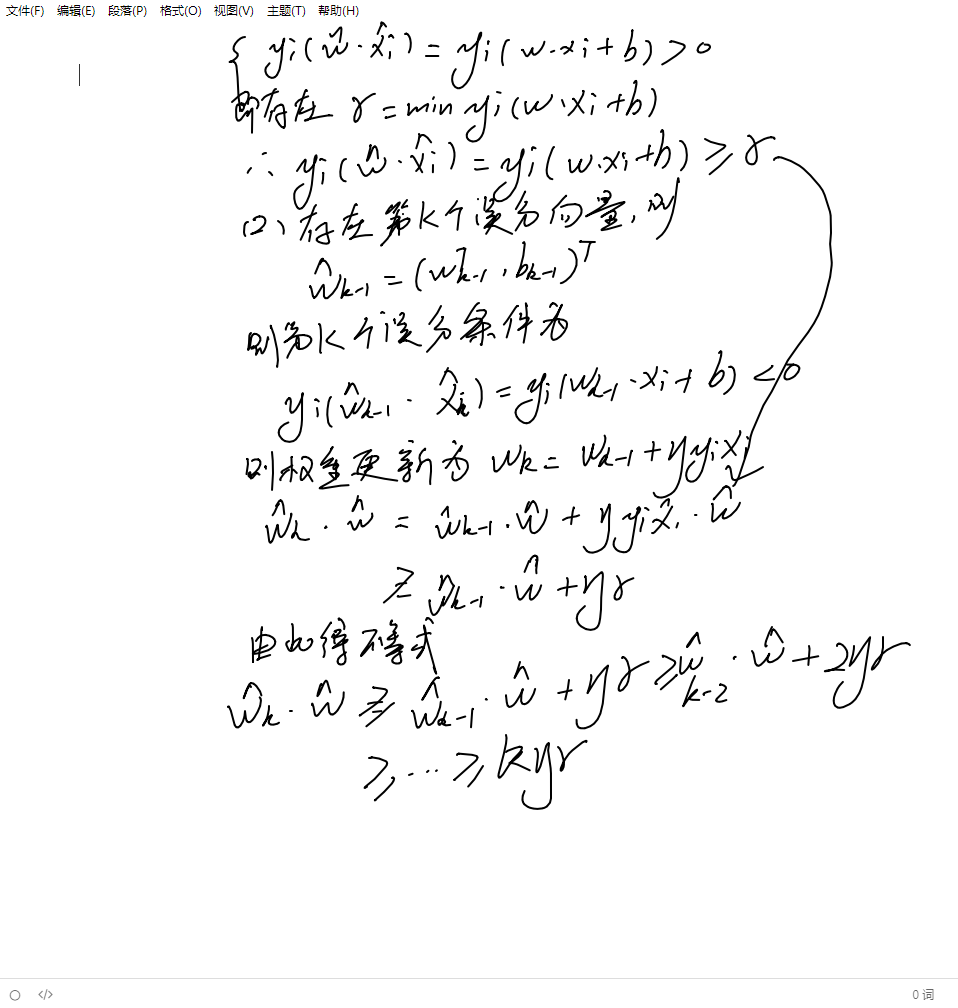 文件(F) 编辑(E) 段落(P) 格式(O) 视图(V) 主题(T) 帮助(H)
{ yi(ŵ·x̂i) = yi(w·xi+b) > 0
即存在 γ = min yi(w·xi+b)
∴ yi(ŵ·x̂i) = yi(w·xi+b) ≥ γ
(2) 存在第K个误分向量,则
ŵk-1 = (wᵀk-1, bk-1)ᵀ
则第K个误分条件为
yi(ŵk-1·x̂i) = yi(wk-1·xi+b) < 0
则权重更新为 wk = wk-1+ηyixi
ŵk·ŵ = ŵk-1·ŵ + ηyix̂i·ŵ
≥ ŵk-1·ŵ + ηγ
由此得不等式
ŵk·ŵ ≥ ŵk-1·ŵ + ηγ ≥ ŵk-2·ŵ + 2ηγ
≥ ... ≥ kηγ
</> 0 词